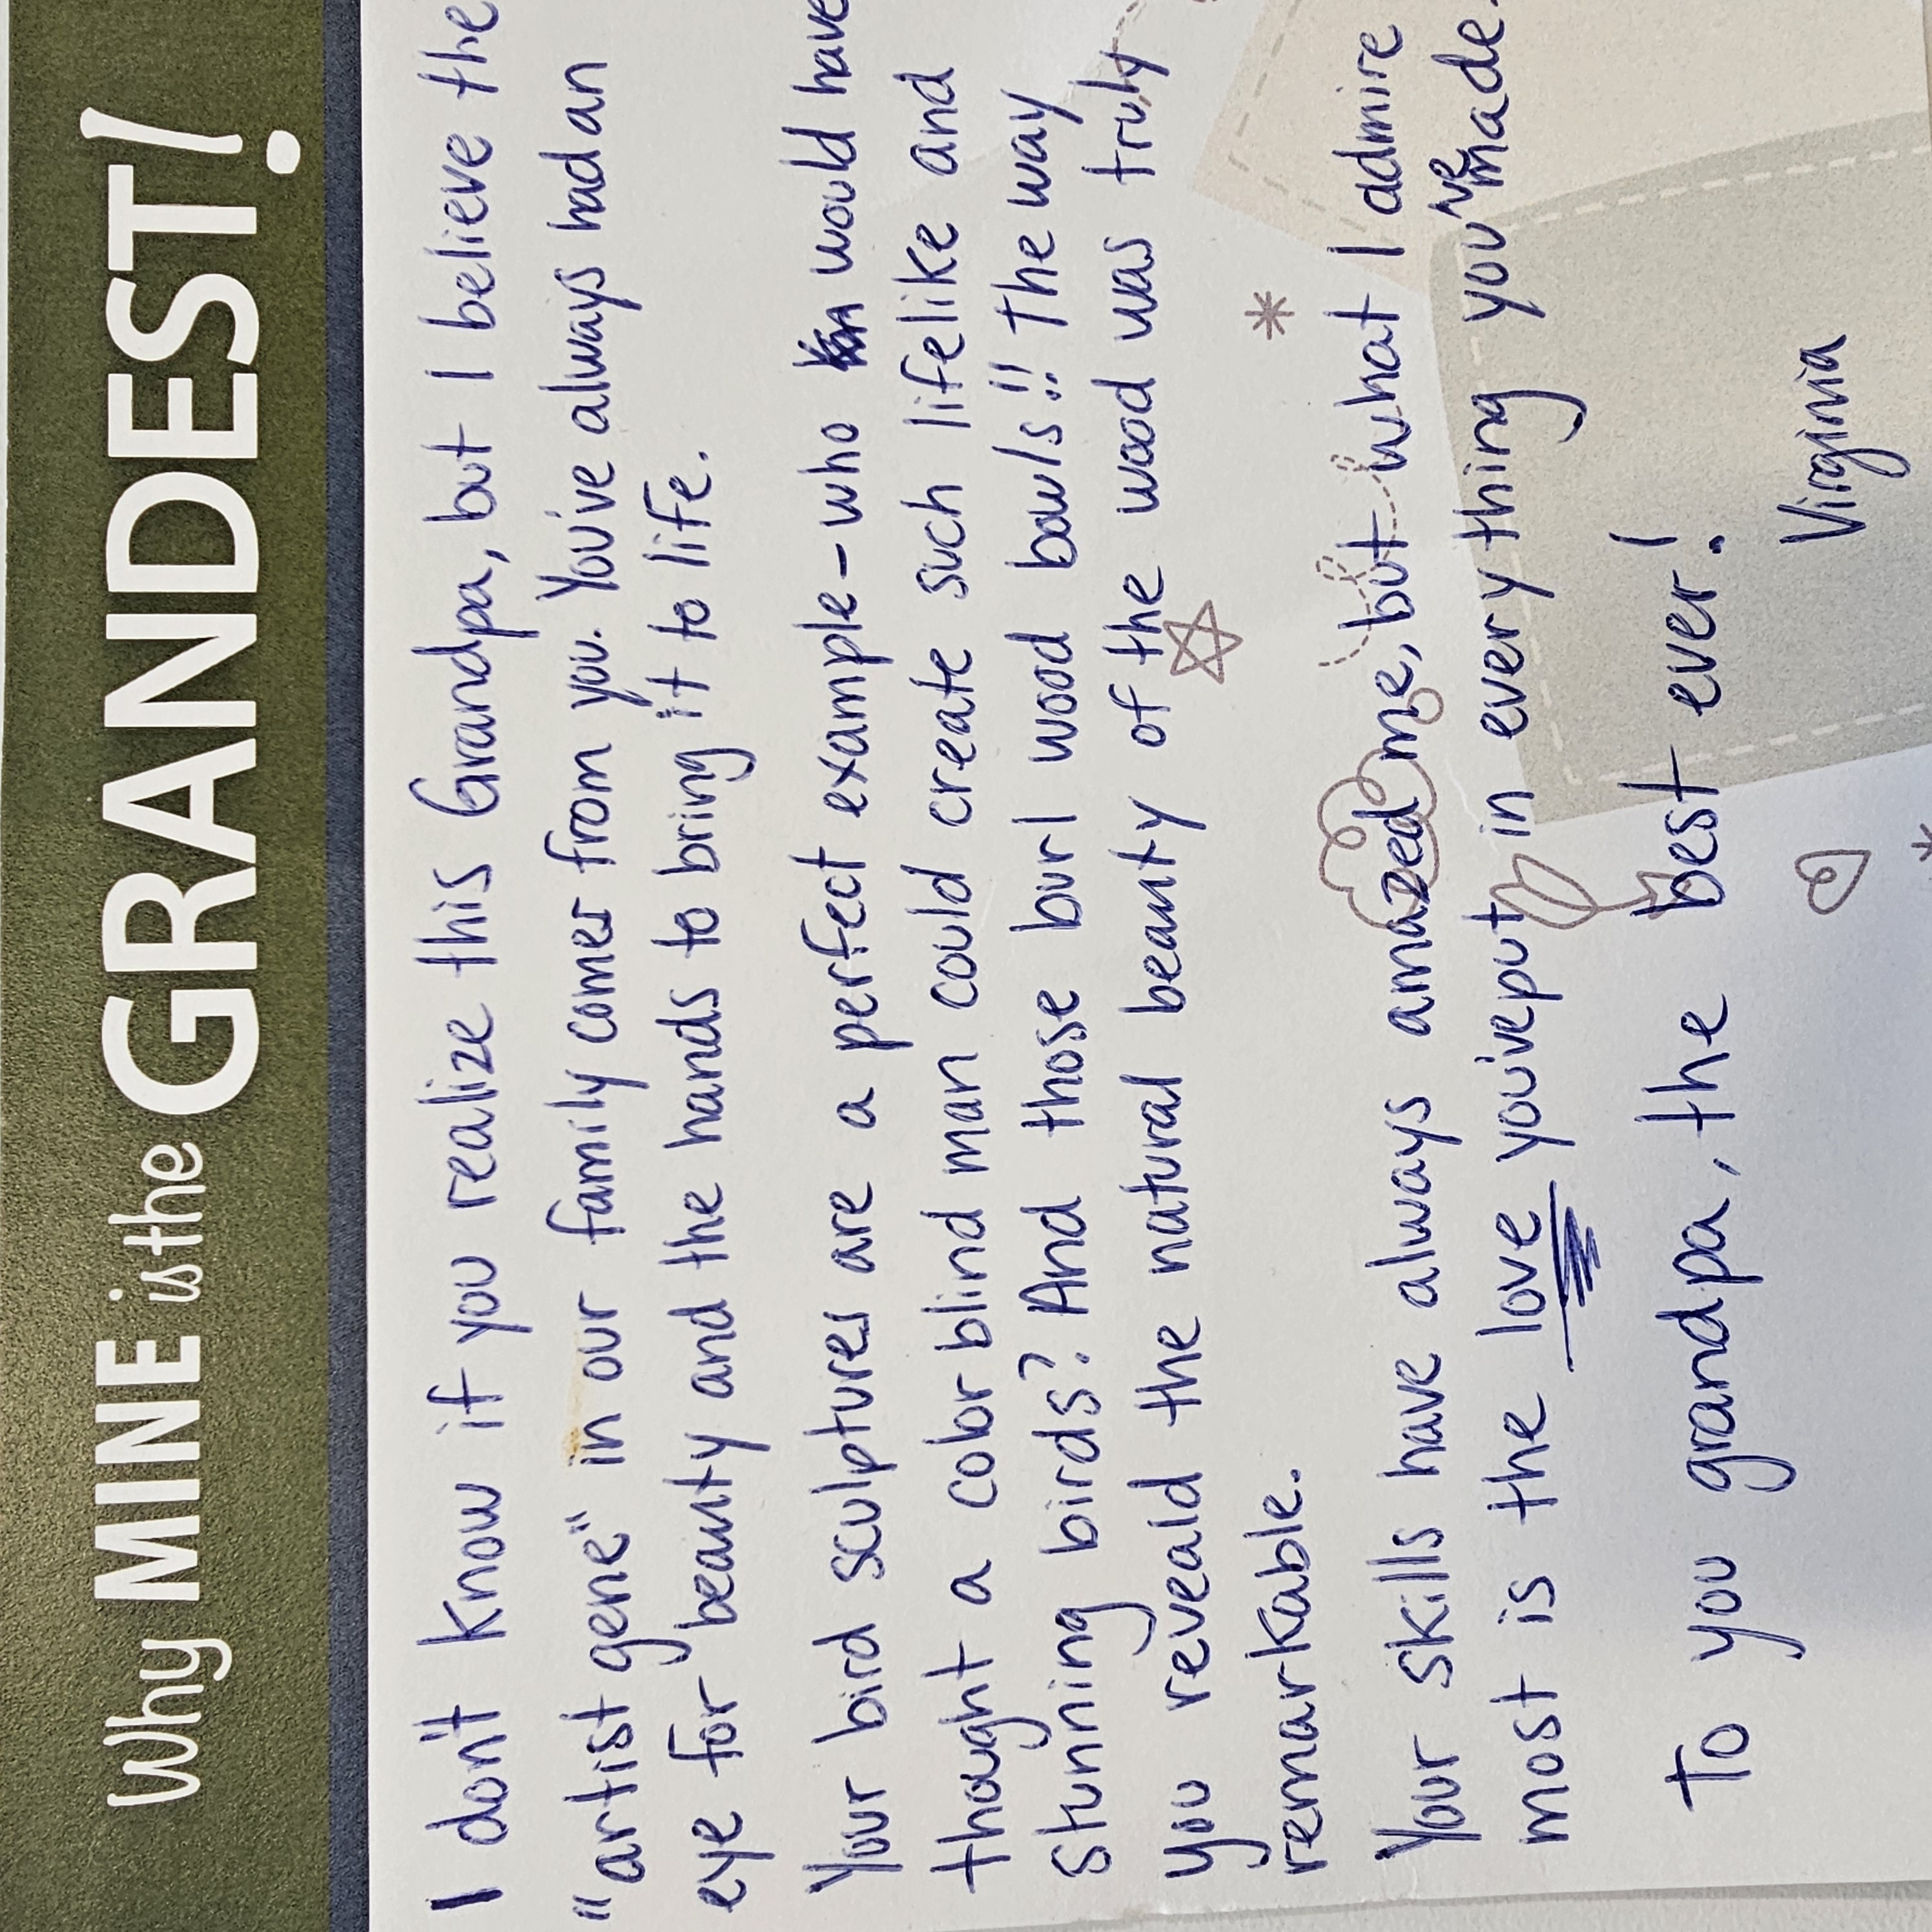 Why MINE is the GRANDEST!
I don't know if you realize this Grandpa, but I believe the
"artist gene" in our family comes from you. You've always had an
eye for beauty and the hands to bring it to life.
Your bird sculptures are a perfect example - who would have
thought a color blind man could create such lifelike and
stunning birds? And those burl wood bowls!! The way
you reveald the natural beauty of the wood was truly
remarkable.
Your skills have always amazed me, but what I admire
most is the love you've put in every thing you've made.
To you grandpa, the best ever!
Virginia